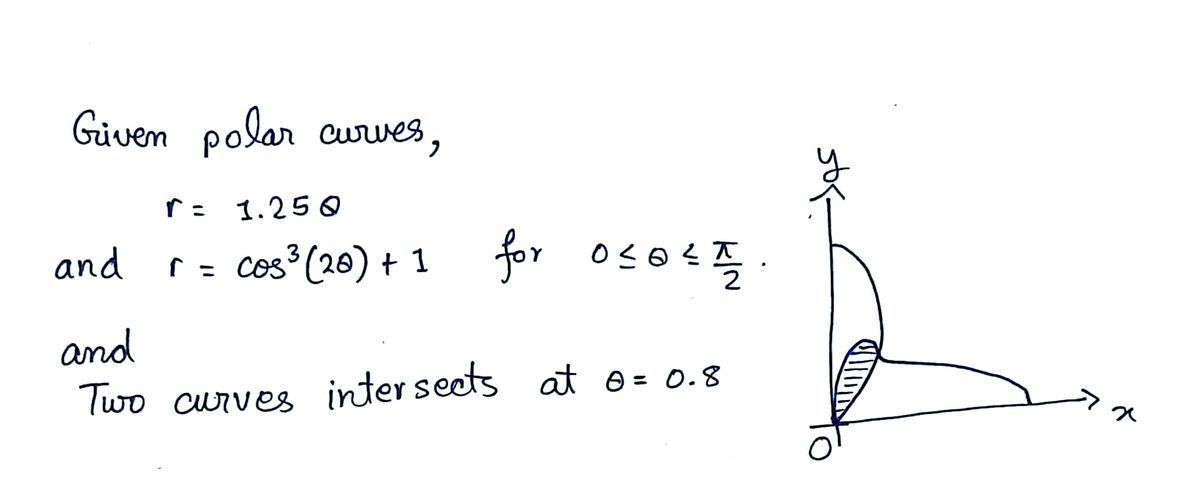 Given polar curves,
r = 1.25θ
and r = cos³(2θ) + 1 for 0 ≤ θ ≤ π/2 .
and
Two curves intersects at θ = 0.8
y
x
O